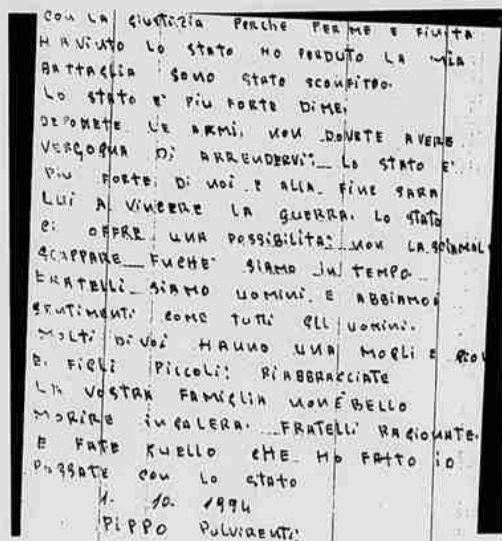 CON LA GIUSTIZIA PERCHE PER ME E FINITA
HA VINTO LO STATO HO PERDUTO LA MIA
BATTAGLIA SONO STATO SCONFITTO.
LO STATO E' PIU FORTE DI ME.
DEPONETE LE ARMI, NON DOVETE AVERE
VERGOGNA DI ARRENDERVI: LO STATO E'
PIU FORTE DI NOI E ALLA FINE SARA
LUI A VINCERE LA GUERRA. LO STATO
CI OFFRE UNA POSSIBILITA: NON LASCIAMOL
SCAPPARE FUCHE' SIAMO IN TEMPO
FRATELLI SIAMO UOMINI E ABBIAMO
SENTIMENTI COME TUTTI GLI UOMINI.
MOLTI DI VOI HANNO UNA MOGLI E
E FIGLI PICCOLI: RIABBRACCIATE
LA VOSTRA FAMIGLIA NON È BELLO
MORIRE IN GALERA. FRATELLI RAGIONATE.
E FATE KUELLO CHE HO FATTO IO
PASSATE CON LO STATO
1. 10. 1994
PIPPO PULVIRENTI